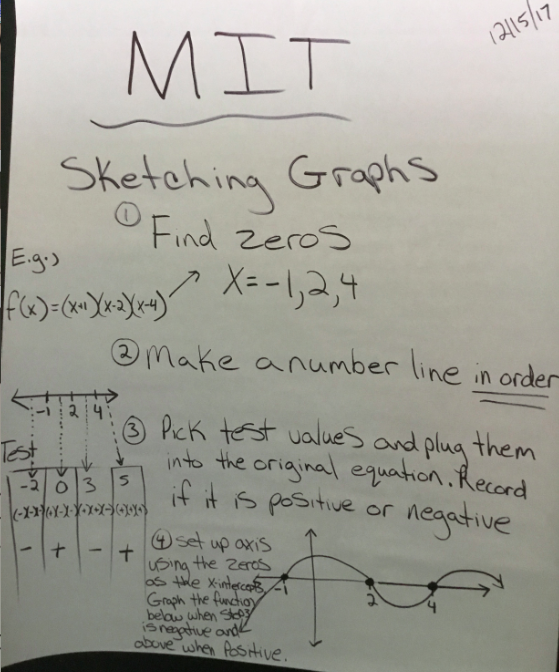 12/15/17
MIT
Sketching Graphs
① Find zeros
E.g.,
f(x)=(x+1)(x-2)(x-4)
X=-1,2,4
② Make a number line in order
-1 2 4
③ Pick test values and plug them
into the original equation. Record
if it is positive or negative
Test
-2 0 3 5
(-)(-)(-) (+)(-)(-) (+)(+)(-) (+)(+)(+)
- + - +
④ set up axis
using the zeros
as the x-intercepts.
Graph the function
below when step 3
is negative and
above when Positive.
-1 2 4